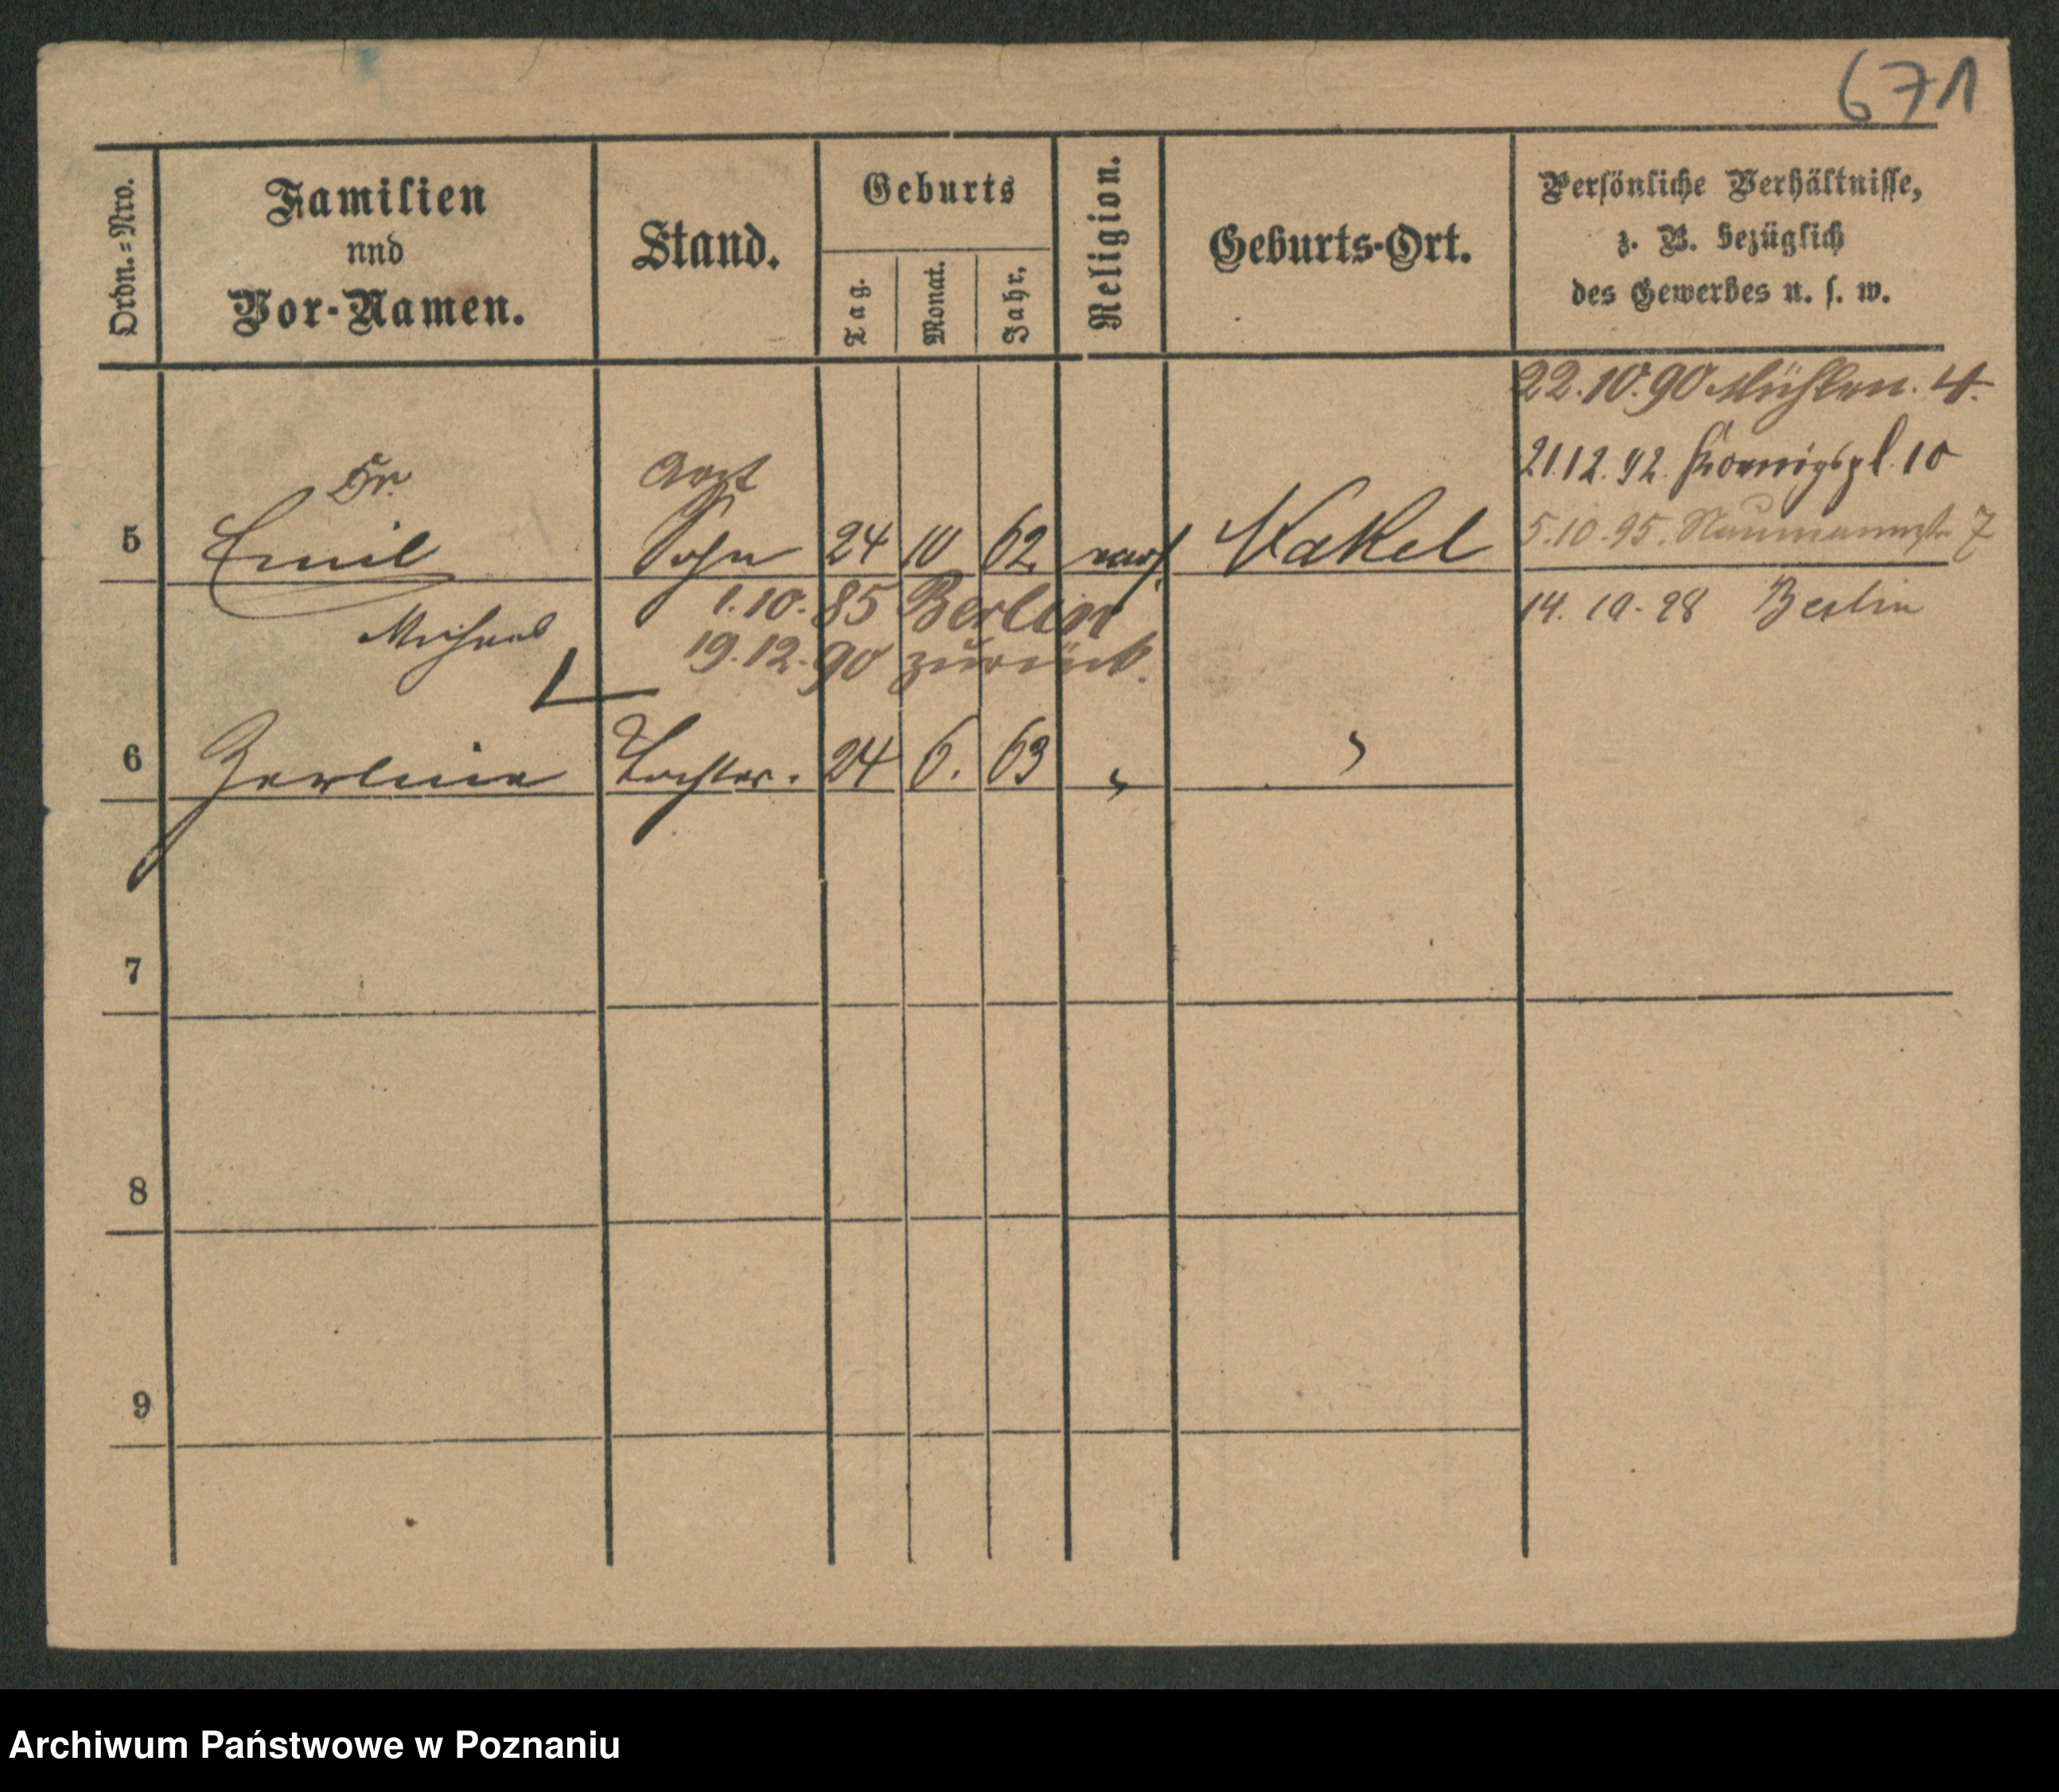 671
Ordn.=Nro.
Familien
und
Vor-Namen.
Stand.
Geburts
Tag.
Monat.
Jahr.
Religion.
Geburts-Ort.
Persönliche Verhältnisse,
z. B. bezüglich
des Gewerbes u. s. w.
22.10.90 Mühlen. 4.
21.12.92. Koenigspl. 10
5.10.95. Naumannstr 7
14. 10. 98 Berlin
Dr.
Arzt
5 Emil Sohn 24 10 62 Nakel
1.10.85 Berlin
19.12.90 zurück.
6 Zerline Tochter. 24 6. 63 " "
7
8
9
Archiwum Państwowe w Poznaniu